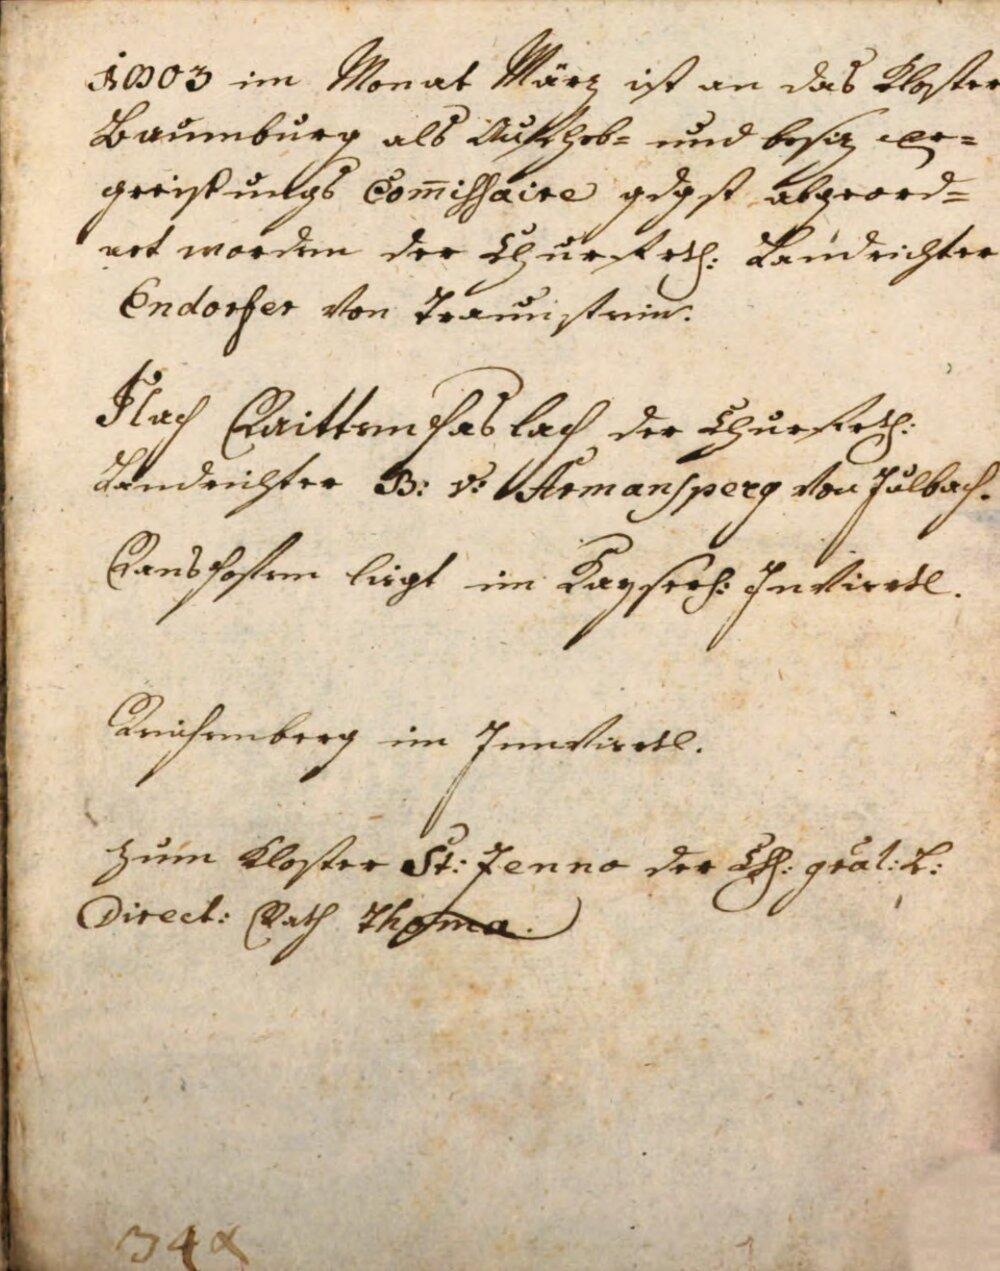 1803 im Monat März ist an das Kloster
Baumburg als Aufheb= und besiz er=
greifungs Commissaire gdgst abgeord=
net worden der Churfrtl: Landrichter
Endorfer von Traunstein.
Nach Raittenhaslach der Churfrtl:
Landrichter B: v: Armansperg von Julbach.
Ranshofen ligt im Kayserl: Inviertl.
Reichenberg im Innviertl.
zum Kloster St: Zenno der Chf: gräl: L:
Direct: Rath Thoma.
34